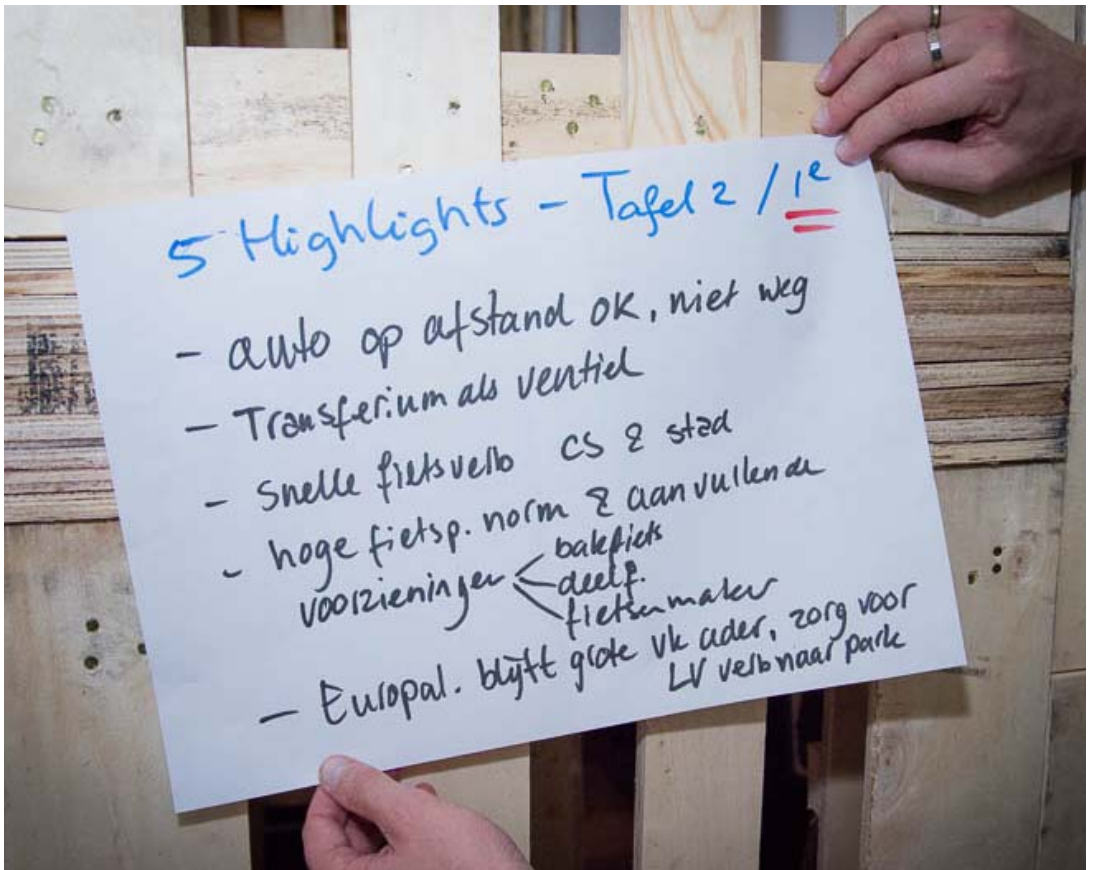 5 Highlights - Tafel 2 / 1e
- auto op afstand OK, niet weg
- Transferium als ventiel
- snelle fietsverb CS & stad
- hoge fietsp. norm & aanvullende
voorzieningen < bakfiets
deelf.
fietsenmaker
- Europal. blijft grote vk ader, zorg voor
LV verb naar park